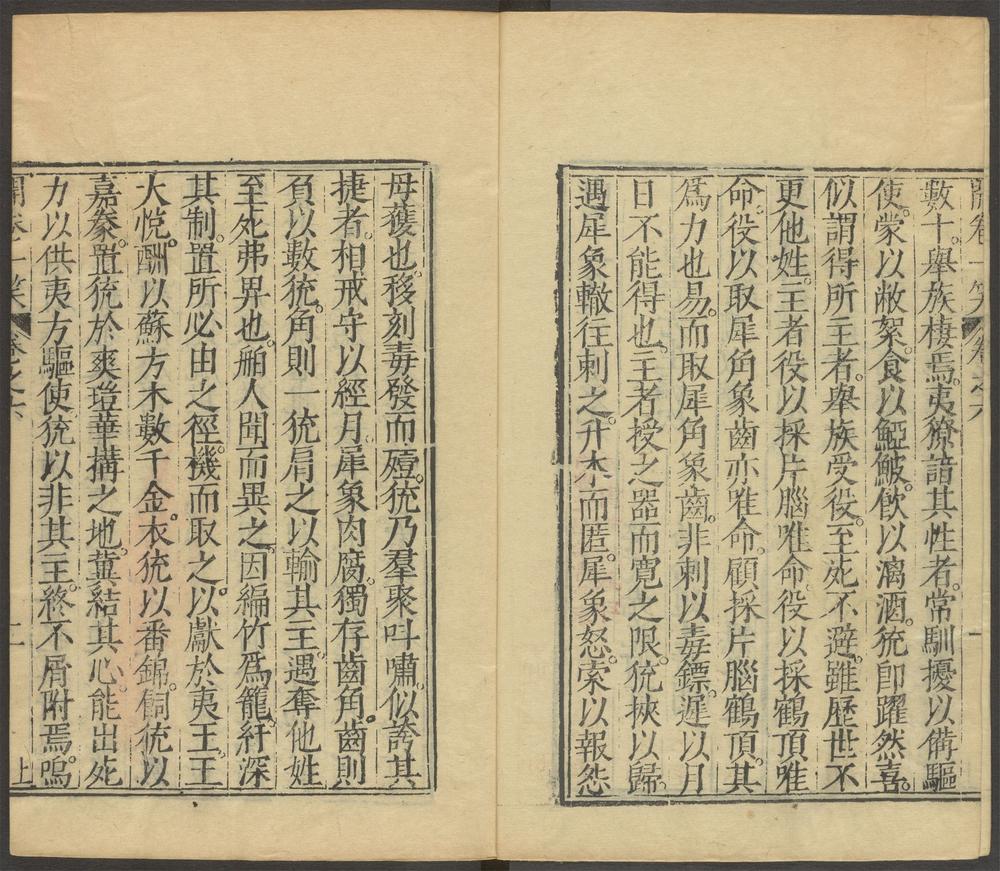 開卷一笑 卷之六 一
數十。舉族棲焉。夷獠諳其性者。常馴擾以備驅
使。蒙以敝絮。食以䱉鮍。飲以漓酒。狁卽躍然喜。
似謂得所主者。舉族受役。至死不避。雖歷世不
更他姓。主者役以採片腦唯命。役以採鶴頂唯
命。役以取犀角象齒亦唯命。顧採片腦鶴頂。其
爲力也易。而取犀角象齒。非刺以毒鏢。遲以月
日不能得也。主者授之器而寬之限。狁挾以歸。
遇犀象轍往刺之。升木而匿。犀象怒。索以報怨
毋獲也。移刻毒發而殪。狁乃羣聚叫嘯。似誇其
捷者。相戒守以經月。犀象肉腐。獨存齒角。齒則
負以數狁。角則一狁肩之以輸其主。遇奪他姓
至死弗畀也。舶人聞而異之。因編竹爲籠。紆深
其制。置所必由之徑。機而取之。以獻於夷王。王
大悅。酬以蘇方木數千金。衣狁以番錦。飼狁以
嘉豢。置狁於爽塏華搆之地。冀結其心。能出死
力以供夷方驅使。狁以非其主。終不屑附焉。嗚
開卷一笑 卷之六 二 上